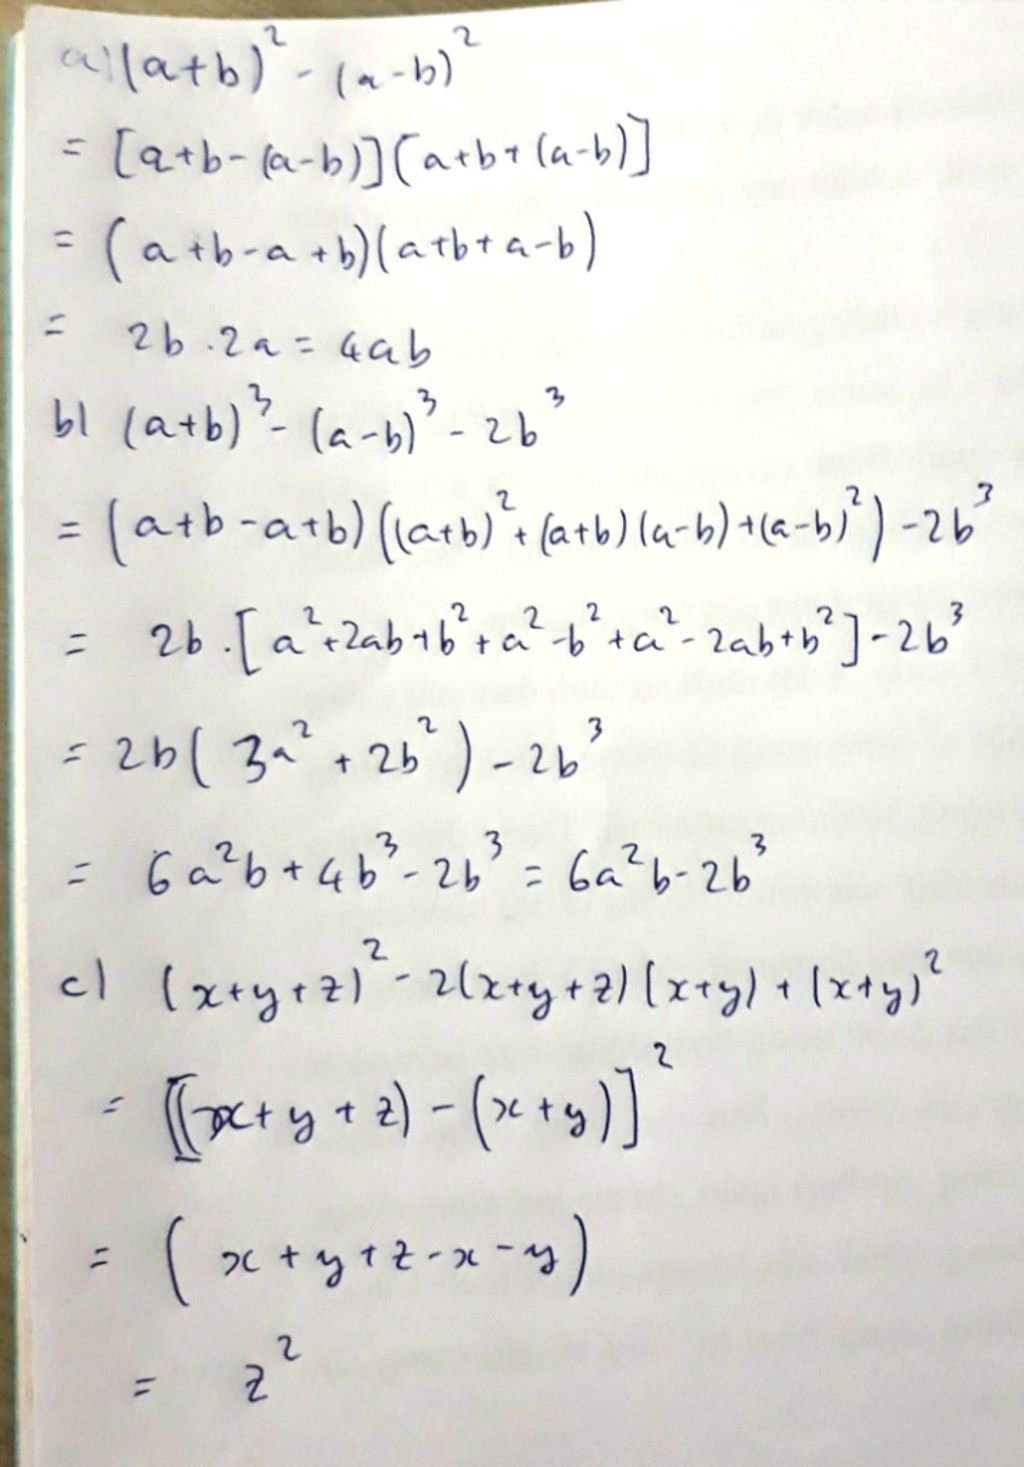 a) (a+b)² - (a-b)²
= [a+b-(a-b)][a+b+(a-b)]
= (a+b-a+b)(a+b+a-b)
= 2b.2a = 4ab
b) (a+b)³ - (a-b)³ - 2b³
= (a+b-a+b)((a+b)²+(a+b)(a-b)+(a-b)²) - 2b³
= 2b.[a²+2ab+b²+a²-b²+a²-2ab+b²] - 2b³
= 2b(3a² + 2b²) - 2b³
= 6a²b + 4b³ - 2b³ = 6a²b - 2b³
c) (x+y+z)² - 2(x+y+z)(x+y) + (x+y)²
= [(x+y+z) - (x+y)]²
= (x+y+z-x-y)
= z²